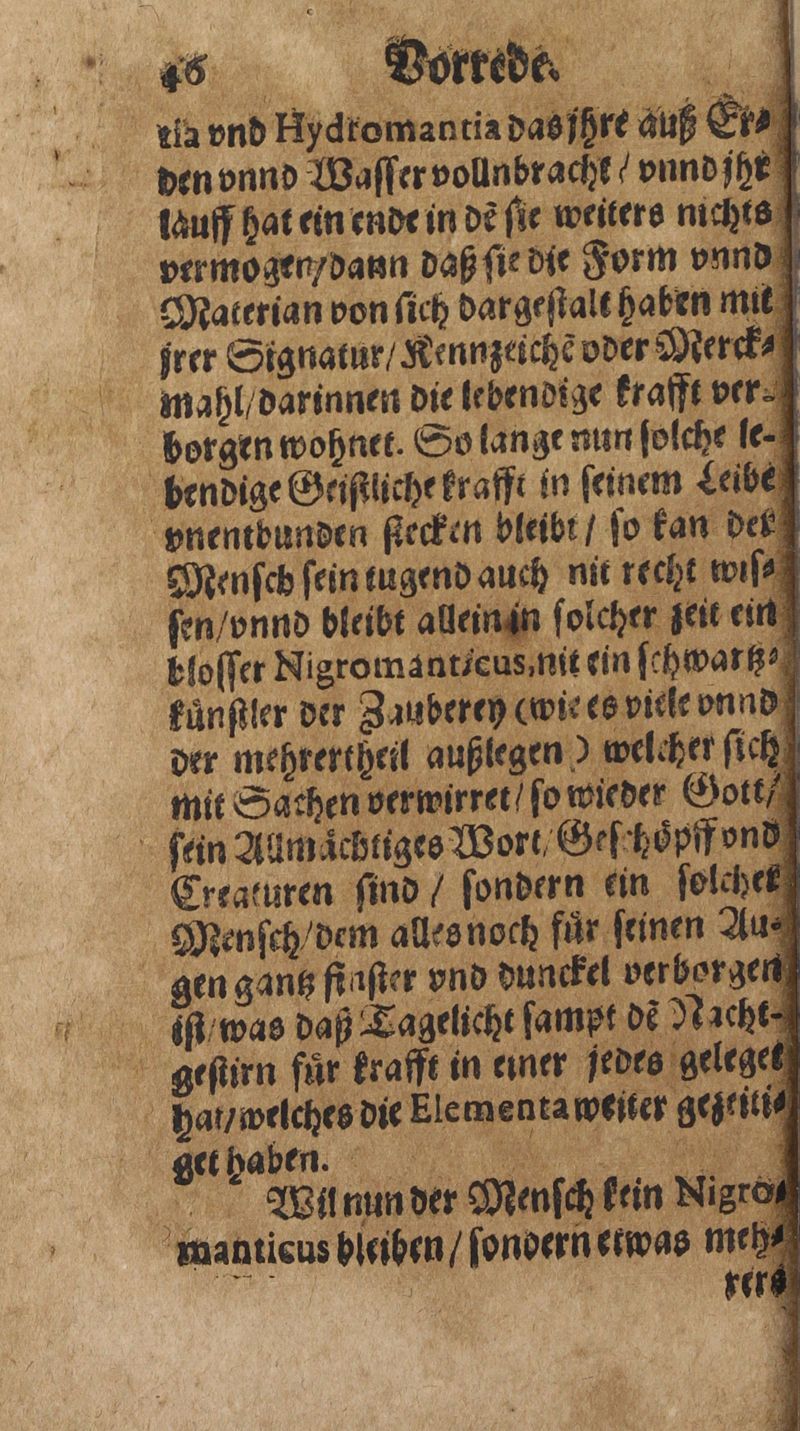 46 Vorrede.
tia vnd Hydromantia das jhre auß Er⸗
den vnnd Wasser vollnbracht / vnnd jhr
lauff hat ein ende in dẽ sie weiters nichts
vermogen/dann daß sie die Form vnnd
Materian von sich dargestalt haben mit
jrer Signatur/ Kennzeichẽ oder Merck⸗
mahl/darinnen die lebendige krafft ver-
borgen wohnet. So lange nun solche le-
bendige Geistliche krafft in seinem Leibe
vnentbunden stecken bleibt / so kan der
Mensch sein tugend auch nit recht wis⸗
sen/vnnd bleibt allein in solcher zeit ein
blosser Nigromanticus, nit ein schwartz⸗
künstler der Zauberey (wie es viele vnnd
der mehrertheil außlegen) welcher sich
mit Sachen verwirret/ so wieder Gott/
sein Allmächtiges Wort/ Geschöpff vnd
Creaturen sind / sondern ein solcher
Mensch/dem alles noch für seinen Au⸗
gen gantz finster vnd dunckel verborgen
ist/was daß Tagelicht sampt dẽ Nacht-
gestirn für krafft in einer jedes geleget
hat/welches die Elementa weiter gezeiti⸗
get haben.
Wil nun der Mensch kein Nigro⸗
manticus bleiben/ sondern etwas meh⸗
rers